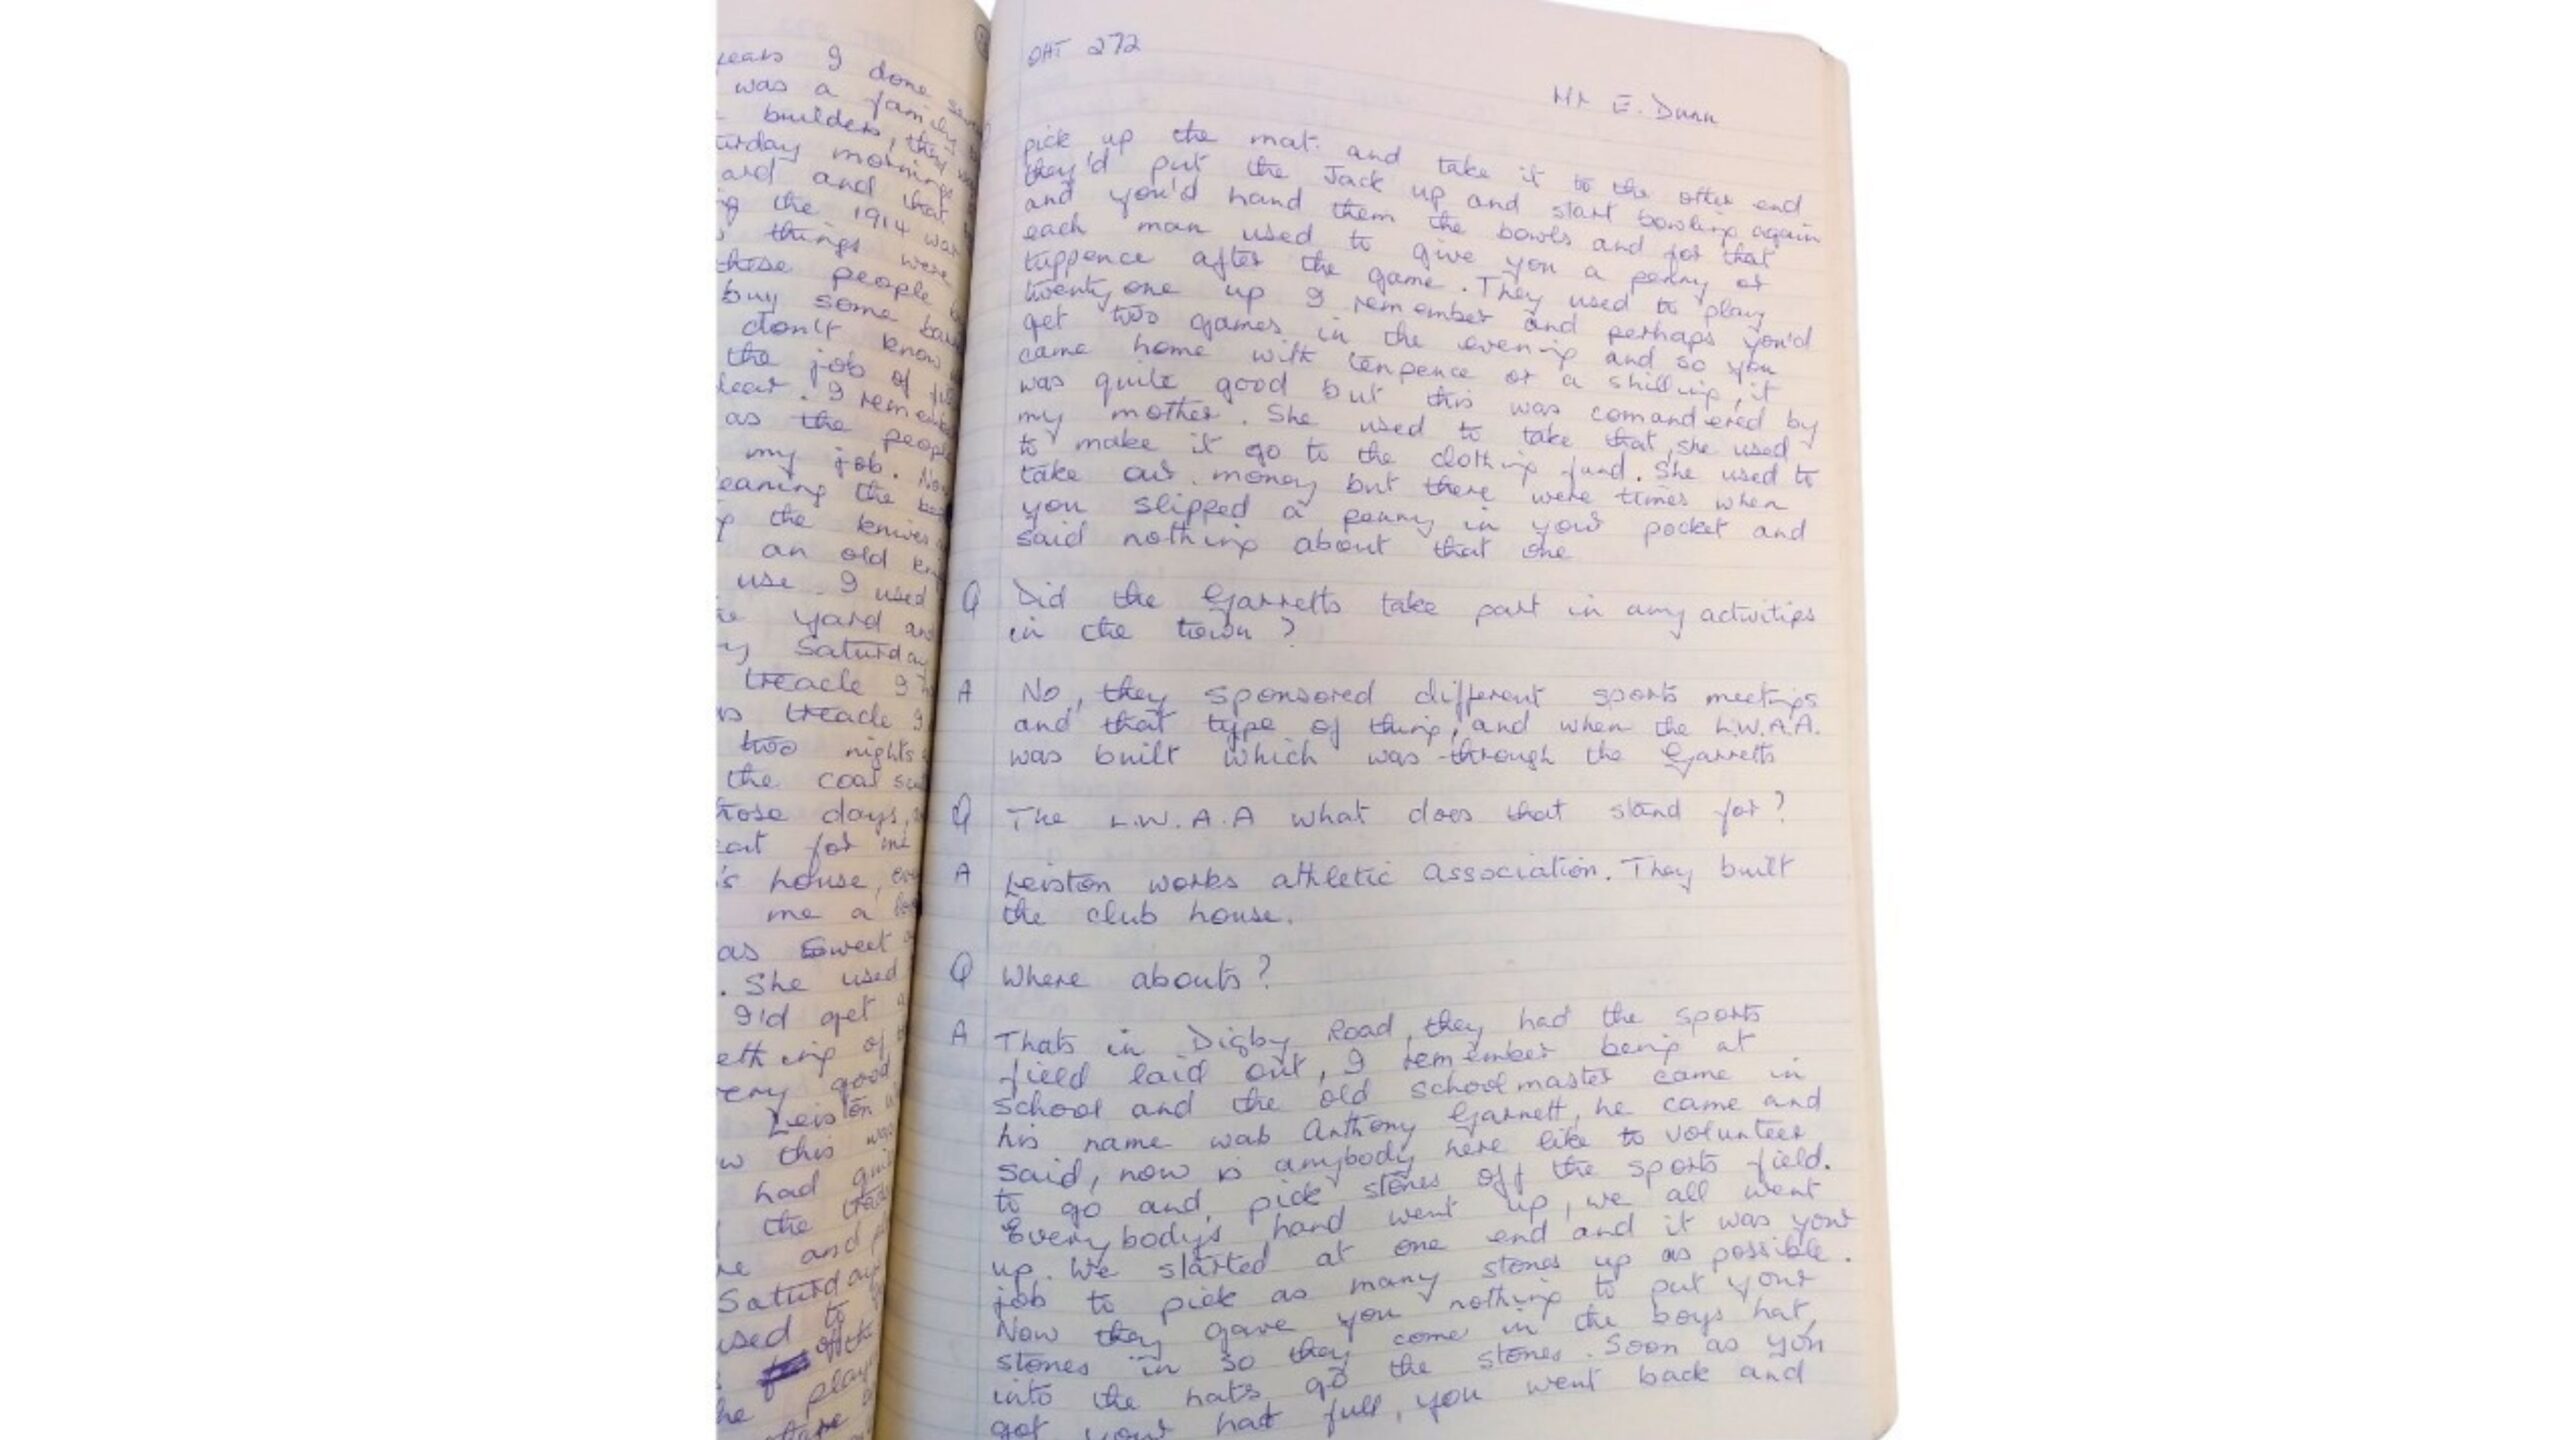 years I done
was a family
builders, they
morning
and that
the 1914 war
things were
these people
buy some
don't know
the job of
I
as the people
my job.
the
the knives
an old
use. I used
yard and
Saturday
treacle I
treacle I
two nights
the coal
days,
for me
house,
me a
as sweet
. She used
I'd get
of
good
Leiston
this was
had
the
and
Saturday
used to
of the
play
OHT 272
Mr E. Dunn
pick up the mat. and take it to the other end
they'd put the Jack up and start bowling again
and you'd hand them the bowls and for that
each man used to give you a penny or
tuppence after the game. They used to play
twenty one up I remember and perhaps you'd
get two games in the evening and so you
came home with tenpence or a shilling, it
was quite good but this was comandered by
my mother. She used to take that, she used
to make it go to the clothing fund. She used to
take our money but there were times when
you slipped a penny in your pocket and
said nothing about that one
Q Did the Garretts take part in any activities
in the town?
A No, they sponsored different sports meetings
and that type of thing, and when the L.W.A.A.
was built which was through the Garretts
Q The L.W.A.A what does that stand for?
A Leiston works athletic association. They built
the club house.
Q Where abouts?
A Thats in Digby Road, they had the sports
field laid out, I remember being at
school and the old schoolmaster came in
his name was Anthony Garnett, he came and
said, now is anybody here like to volunteer
to go and pick stones off the sports field.
Everybodys hand went up, we all went
up. We started at one end and it was your
job to pick as many stones up as possible.
Now they gave you nothing to put your
stones in so they come in the boys hat,
into the hats go the stones. Soon as you
got your hat full, you went back and